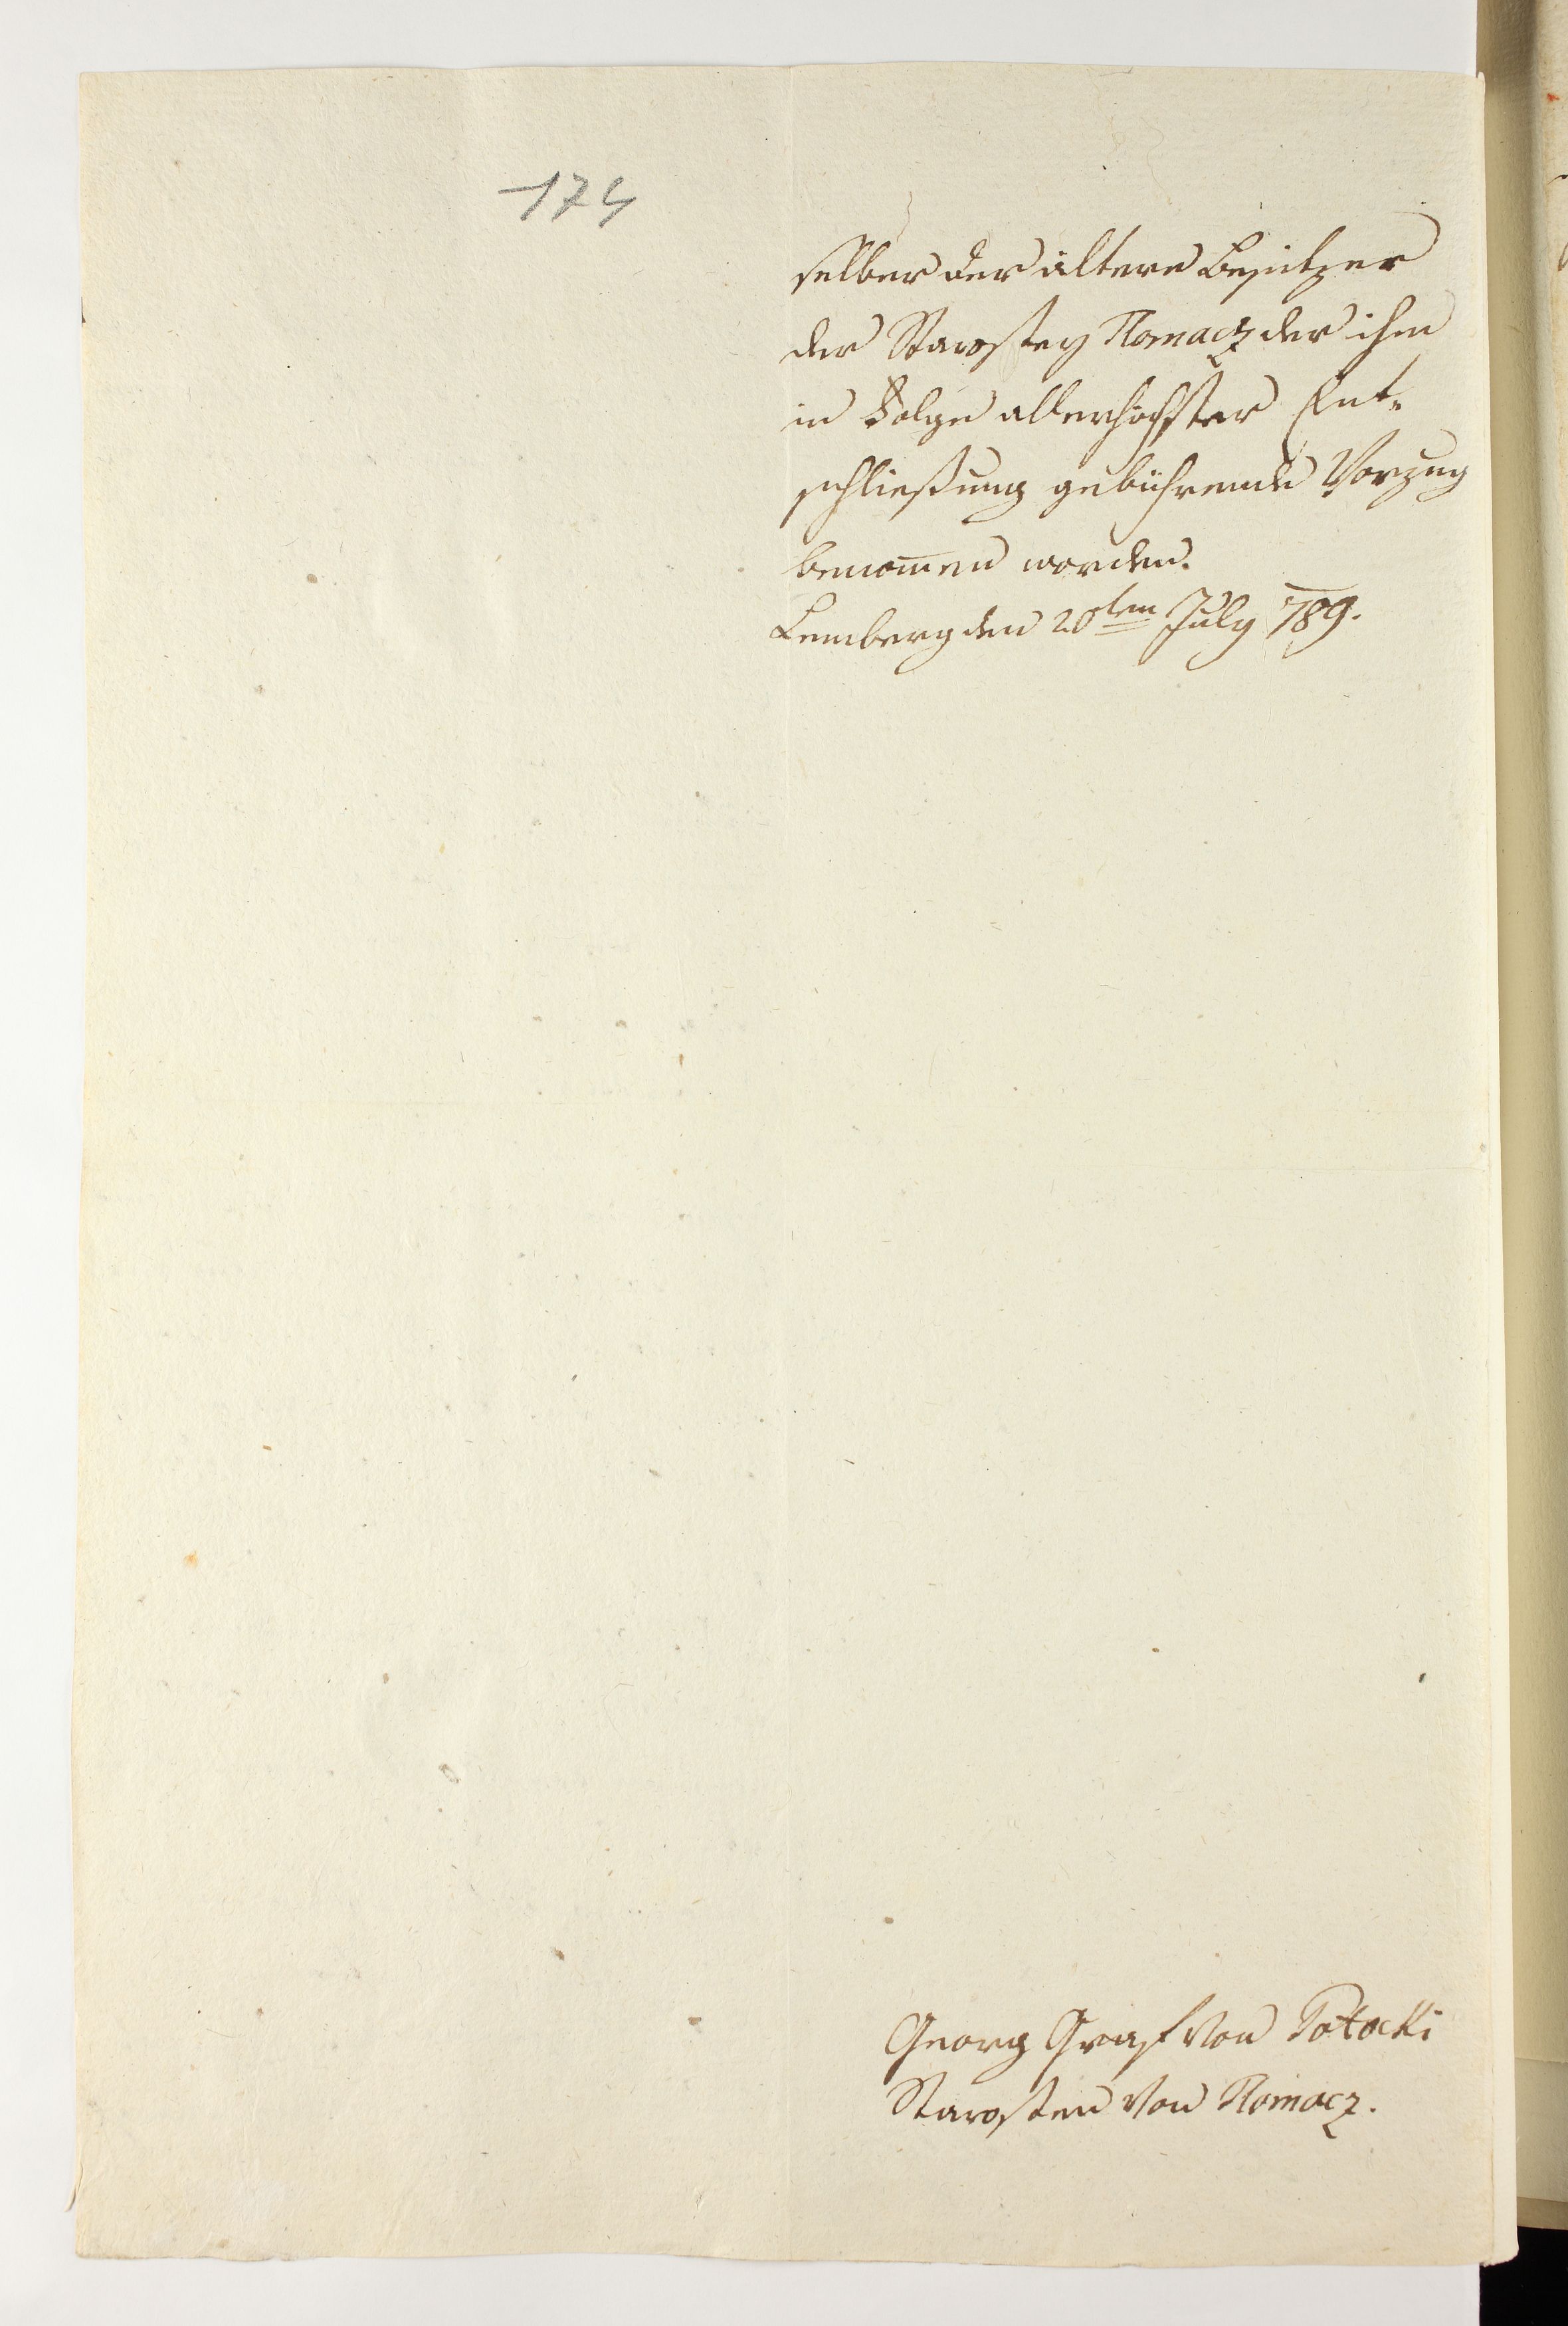 174
selben der ältere Besitzer
der Starostey Tlomacz der ihm
in Folge allerhöchster Ent=
schließung gebührende Vorzug
benom̄en worden.
Lemberg den 20ten July 789.
Georg Graf von Potocki
Starosten von Tlomacz.